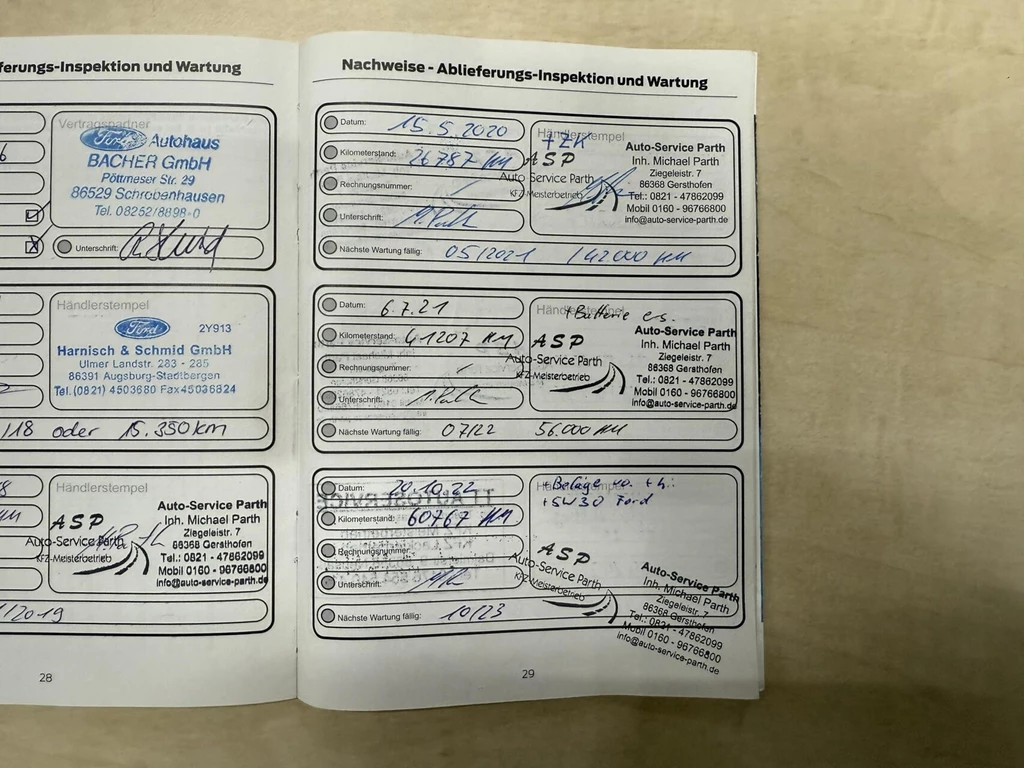 ferungs-Inspektion und Wartung
Vertragspartner
Ford Autohaus
BACHER GmbH
Pöttmeser Str. 29
86529 Schrobenhausen
Tel. 08252/8898-0
Unterschrift:
Händlerstempel
Ford 2Y913
Harnisch & Schmid GmbH
Ulmer Landstr. 283 - 285
86391 Augsburg-Stadtbergen
Tel. (0821) 4503680 Fax 45036824
/18 oder 15.350 km
Händlerstempel
ASP
Auto-Service Parth
KFZ-Meisterbetrieb
Auto-Service Parth
Inh. Michael Parth
Ziegeleistr. 7
86368 Gersthofen
Tel.: 0821 - 47862099
Mobil 0160 - 96766800
info@auto-service-parth.de
/2019
28
Nachweise - Ablieferungs-Inspektion und Wartung
Datum: 15.5.2020
Kilometerstand: 26787 KM
Rechnungsnummer:
Unterschrift:
Nächste Wartung fällig: 05/2021 / 42000 KM
Händlerstempel
+ZK
ASP
Auto Service Parth
KFZ-Meisterbetrieb
Auto-Service Parth
Inh. Michael Parth
Ziegeleistr. 7
86368 Gersthofen
Tel.: 0821 - 47862099
Mobil 0160 - 96766800
info@auto-service-parth.de
Datum: 6.7.21
Kilometerstand: 41207 KM
Rechnungsnummer:
Unterschrift:
Nächste Wartung fällig: 07/22 56.000 KM
+Batterie es.
ASP
Auto-Service Parth
KFZ-Meisterbetrieb
Auto-Service Parth
Inh. Michael Parth
Ziegeleistr. 7
86368 Gersthofen
Tel.: 0821 - 47862099
Mobil 0160 - 96766800
info@auto-service-parth.de
Datum: 20.10.22
Kilometerstand: 60767 KM
Rechnungsnummer:
Unterschrift:
Nächste Wartung fällig: 10/23
+Beläge vo. + hi.
+5W30 Ford
ASP
Auto-Service Parth
KFZ-Meisterbetrieb
Auto-Service Parth
Inh. Michael Parth
Ziegeleistr. 7
86368 Gersthofen
Tel.: 0821 - 47862099
Mobil 0160 - 96766800
info@auto-service-parth.de
29